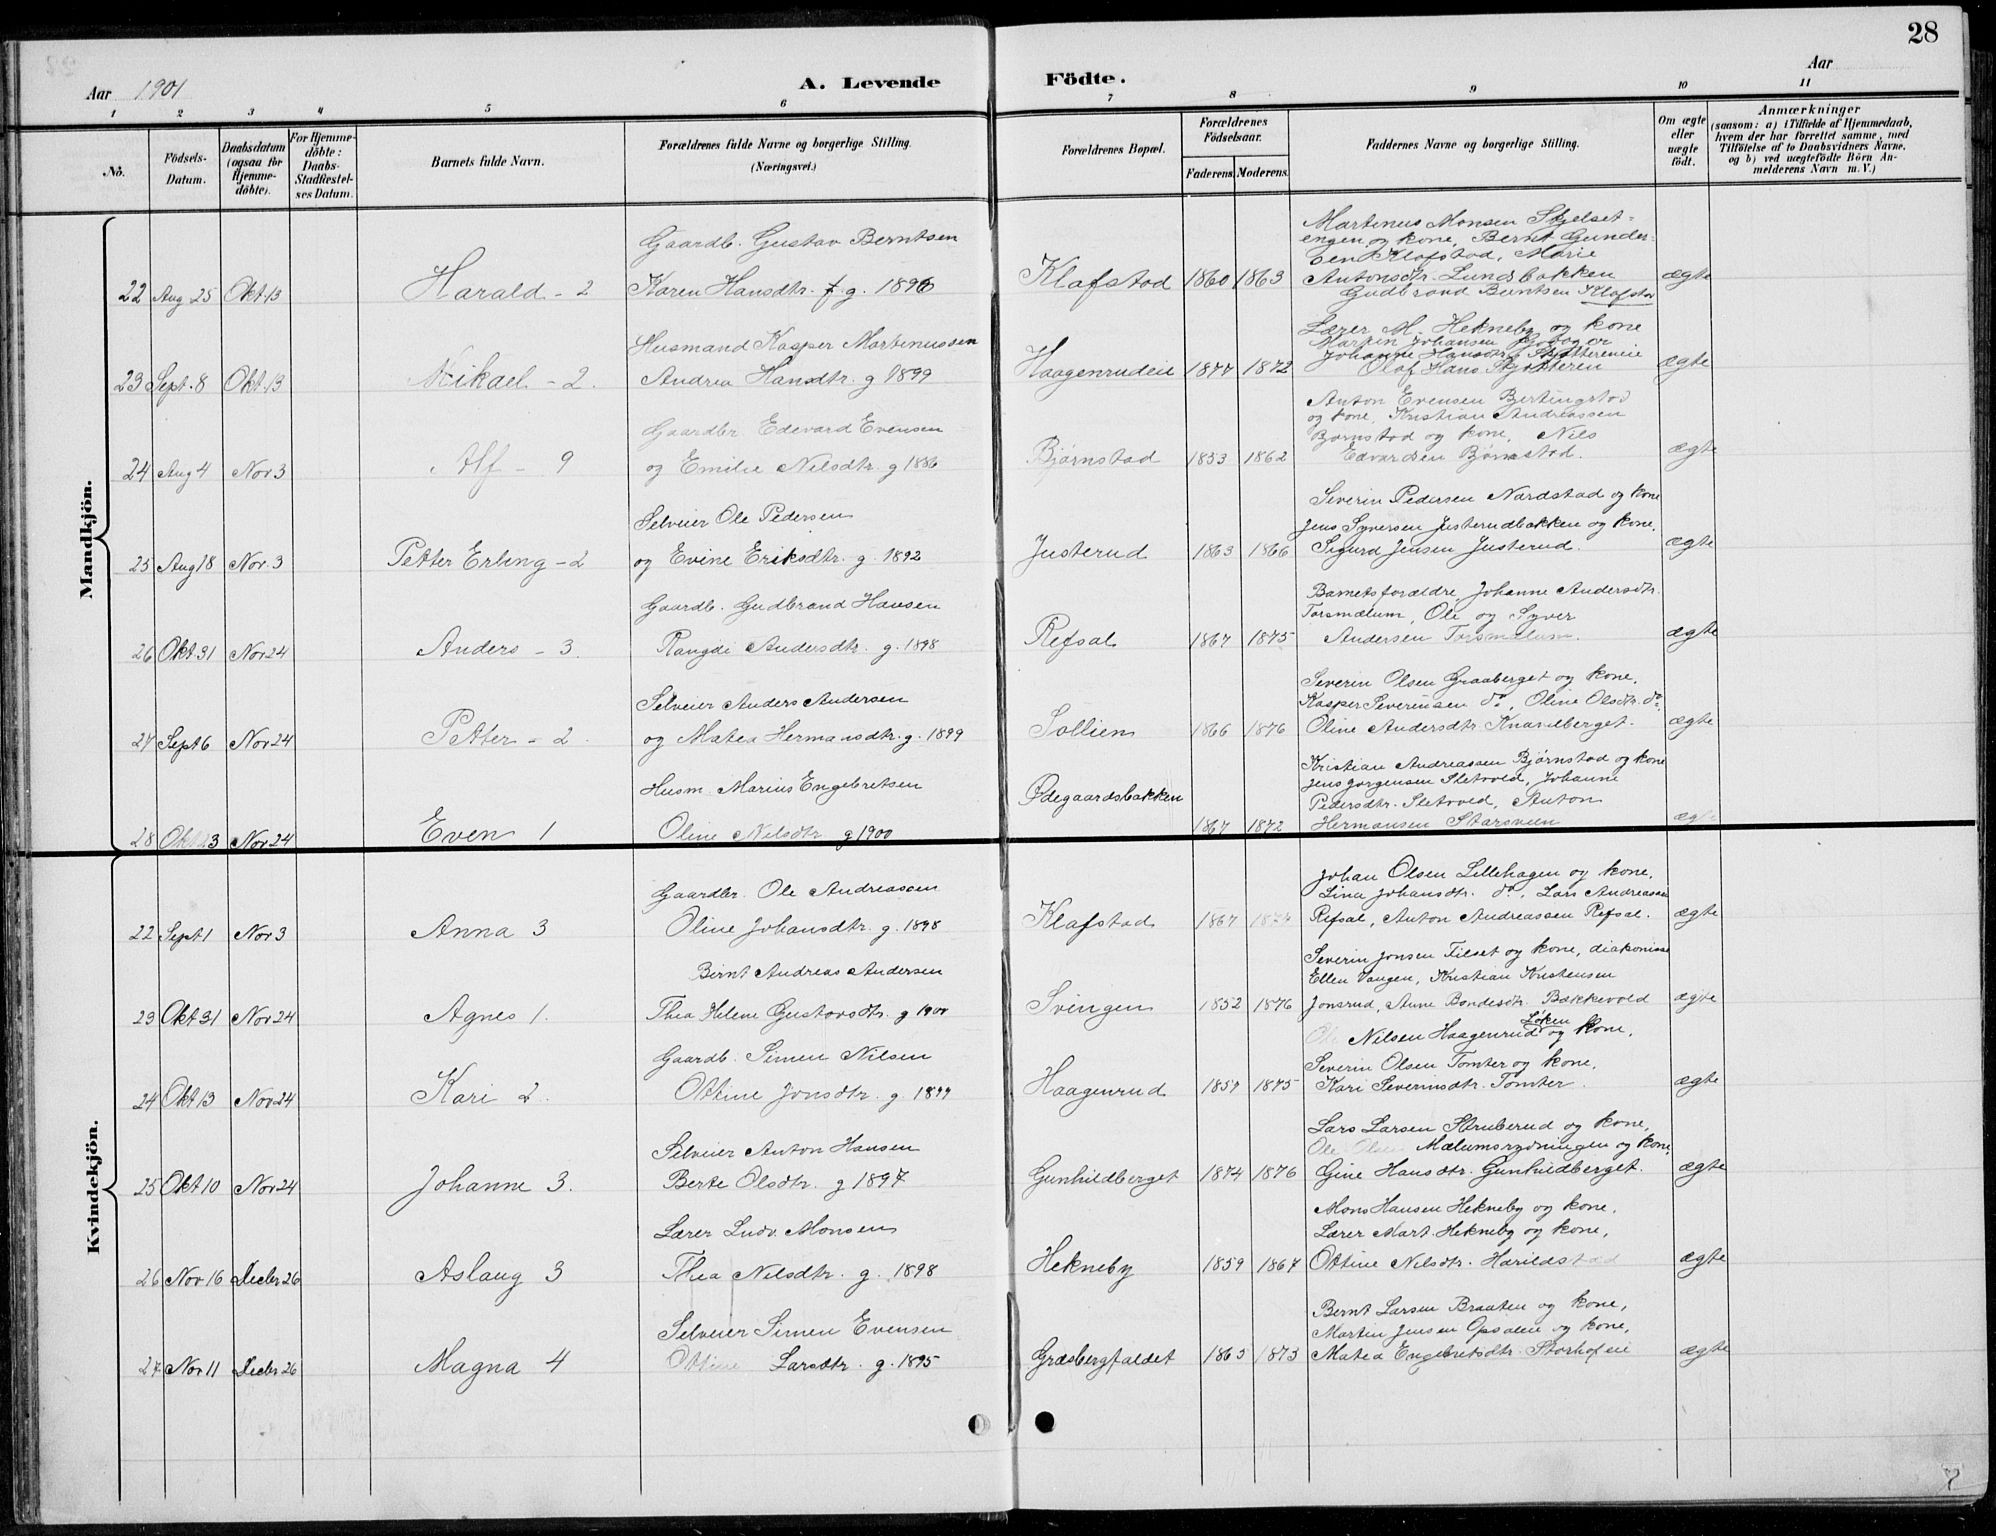 28
Aar 1901
A. Levende Födte.
Aar
1 2 3 4 5 6 7 8 9 10 11
No.
Födsels-Datum.
Daabsdatum (ogsaa for Hjemme-döbte).
For Hjemme-döbte: Daabs-Stadfæstel-ses Datum.
Barnets fulde Navn.
Forældrenes fulde Navne og borgerlige Stilling.
(Næringsvei.)
Forældrenes Bopæl.
Forældrenes Födselsaar.
Faderens. Moderens.
Faddernes Navne og borgerlige Stilling.
Om ægte eller uægte födt.
Anmærkninger
(saasom: a) i Tilfælde af Hjemmedaab,
hvem der har forrettet samme, med
Tilföielse af to Daabsvidners Navne,
og b) ved uægtefödte Börn An-
melderens Navn m. V.)
Mandkjön.
Gaardb. Gustav Berntsen
Martinus Monsen Skjelset-
engen og kone, Bernt Gunder-
sen Klafstad, Marie
22 Aug 25 Okt 13 Harald - 2 Karen Hansdtr. g. 1896 Klafstad 1860 1863 Antonsdtr. Lundsbakken ægte
Gudbrand Berntsen Klafstad
Husmand Kasper Martinussen
Lærer M. Hekneby og kone
Martin Johansen
Johanne Hansdtr.
23 Sept. 8 Okt 13 Mikael - 2. Andrea Hansdtr. g 1899 Haagenrudeie 1877 1872 Olaf Hans ægte
Gaardbr. Edevard Evensen
Anton Evensen
og kone, Kristian Andreassen
Bjørnstad og kone, Nils
24 Aug 4 Nov 3 Alf - 9 og Emilie Nilsdtr. g 1886 Bjørnstad 1853 1862 Edvardsen Bjørnstad. ægte
Selveier Ole Pedersen
Severin Pedersen Nordstad og kone
Jens Syversen Justerudbakken og kone,
25 Aug 18 Nov. 3 Petter Erling - 2 og Evine Eriksdtr. g. 1892 Justerud 1863 1866 Sigurd Jensen Justerud. ægte
Gaardb. Gudbrand Hansen
Barnets forældre, Johanne Andersdtr.
Torsmælum, Ole og Syver
26 Okt 31 Nov 24 Anders - 3. Rangdi Andersdtr. g. 1898 Refsal 1867 1875 Andersen Torsmælum. ægte
Selveier Anders Andersen
Severin Olsen Graaberget og kone,
Kasper Severinsen do, Oline Olsdtr. do,
27 Sept 6 Nov 24 Petter - 2. og Matea Hermansdtr. g. 1899 Sollien 1866 1876 Oline Andersdtr. Knardberget. ægte
Husm. Marius Engebretsen
Kristian Andreassen Bjørnstad og kone
Jens Jørgensen Sletvold, Johanne
Ødegaardsbakken
Pedersdtr. Sletvold, Anton
28 Okt 13 Nov 24 Even 1 Oline Nilsdtr g 1900 1867 1872 Hermansen Starsveen ægte
Kvindekjön.
Gaardbr. Ole Andreassen
Johan Olsen Lillehagen og kone,
Lina Johansdtr. do, Lars Andreassen
22 Sept 1 Nov 3 Anna 3 Oline Johansdtr. g. 1898 Klafstad 1867 Refsal, Anton Andreassen Refsal. ægte
Bernt Andreas Andersen
Severin Jonsen Filset og kone, diakonisse
Ellen Vangen, Kristian Kristensen
23 Okt 31 Nov 24 Agnes 1. Thea Helene Gustavsdtr. g 1900 Svingen 1852 1876 Jonsrud, Anne Bondesdtr. Bækkevold ægte
Løken
Ole Nilsen Haagenrud og kone,
Gaardb. Simen Nilsen
Severin Olsen Tomter og kone,
24 Okt 13 Nov 24 Kari 2. Ottine Jonsdtr. g 1899 Haagenrud 1857 1875 Kari Severinsdtr. Tomter. ægte
Lars Larsen Struberud og kone,
Selveier Anton Hansen
Ole Olsen Mælumsrydningen og kone,
25 Okt 10 Nov 24 Johanne 3. Berte Olsdtr. g 1897 Gunhildberget 1874 1876 Gine Hansdtr. Gunhildberget. ægte
Mons Hansen Hekneby og kone,
Lærer Ludv. Monsen
Lærer Mart. Hekneby og kone,
26 Nov 16 Decbr 26 Aslaug 3 Thea Nilsdtr. g. 1898 Hekneby 1859 1867 Ottine Nilsdtr. Harildstad ægte
Bernt Larsen Braaten og kone,
Selveier Simen Evensen
Martin Jensen Opsalen og kone,
27 Nov 11 Decbr 26 Magna 4 Ottine Larsdtr. g. 1895 Græsbergfaldet 1865 1873 Matea Engebretsdtr. Storhofeie ægte